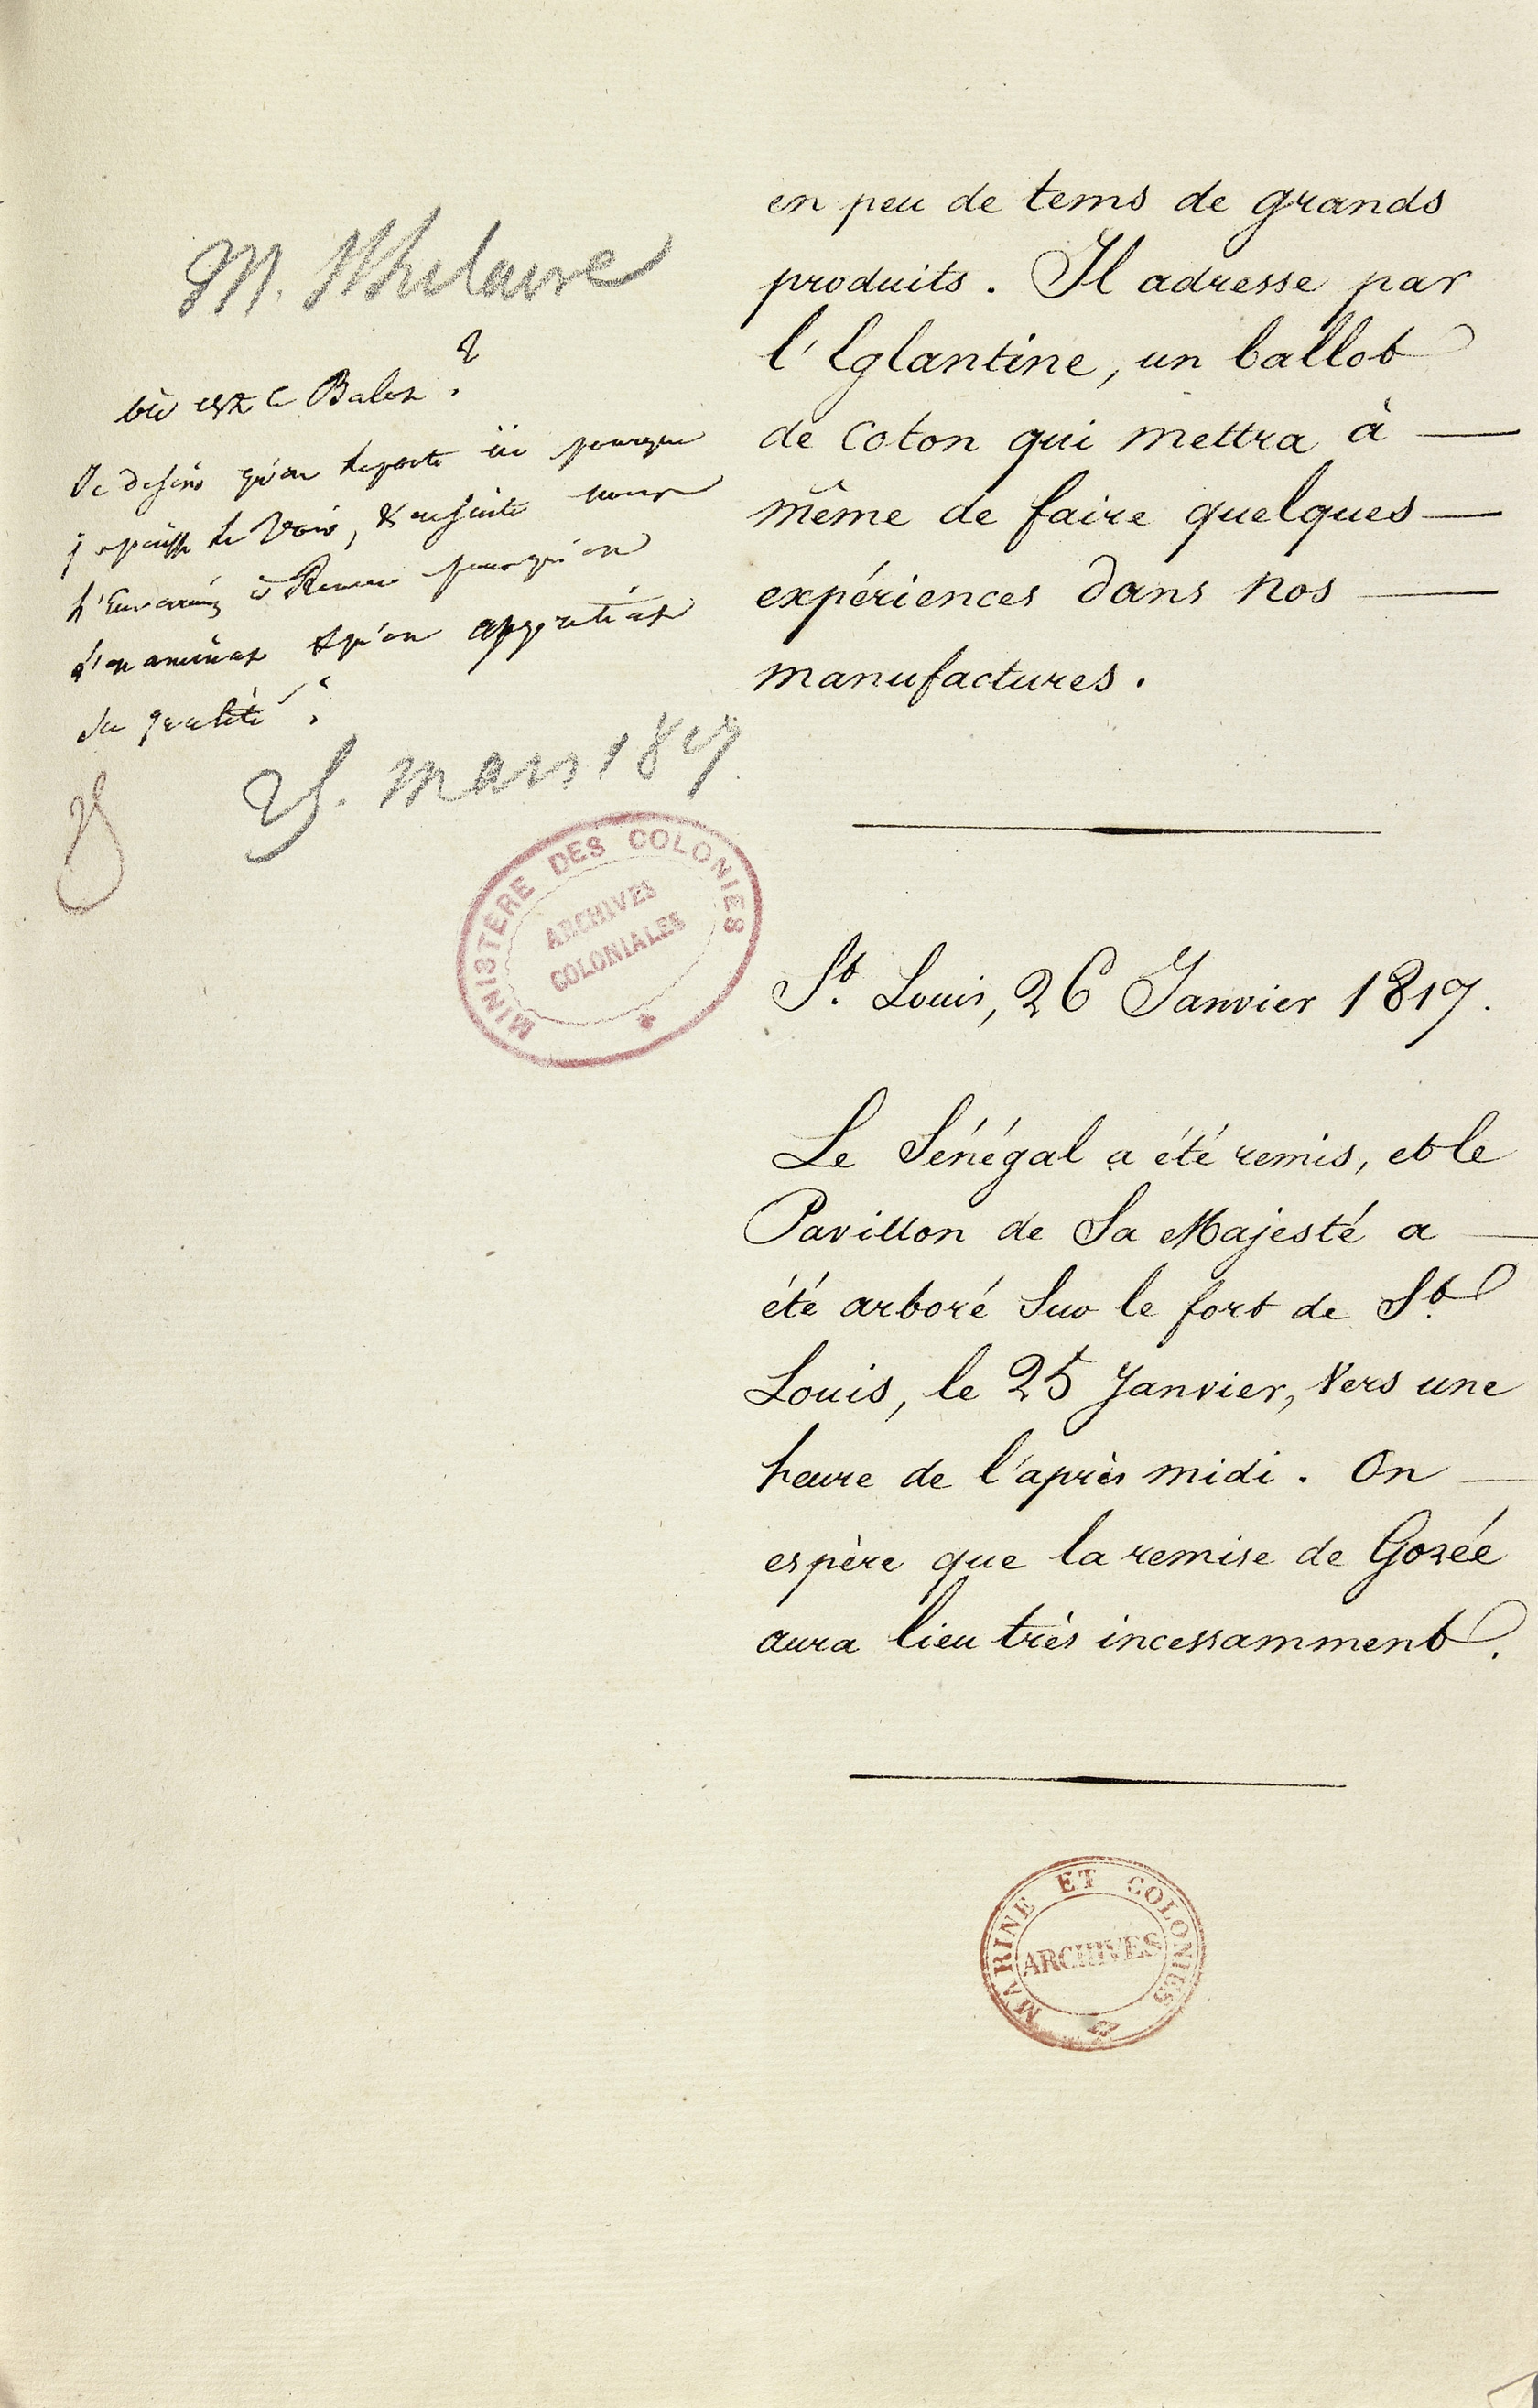 M.
où est ce Balot ?
Je desire qu'on le porte ici pour que
je puisse le voir, & ensuite nous
l'enverrons à Rouen pour qu'on
l'examine & qu'on apprécie
sa qualité.
25. mars 1817.
MINISTÈRE DES COLONIES
ARCHIVES
COLONIALES
en peu de tems de grands
produits. Il adresse par
l'Eglantine, un ballot
de Coton qui mettra à
même de faire quelques
expériences dans nos
manufactures.
St. Louis, 26 Janvier 1817.
Le Sénégal a été remis, et le
Pavillon de Sa Majesté a
été arboré Sur le fort de St.
Louis, le 25 Janvier, Vers une
heure de l'après midi. On
espère que la remise de Gorée
aura lieu très incessamment.
MARINE ET COLONIES
ARCHIVES